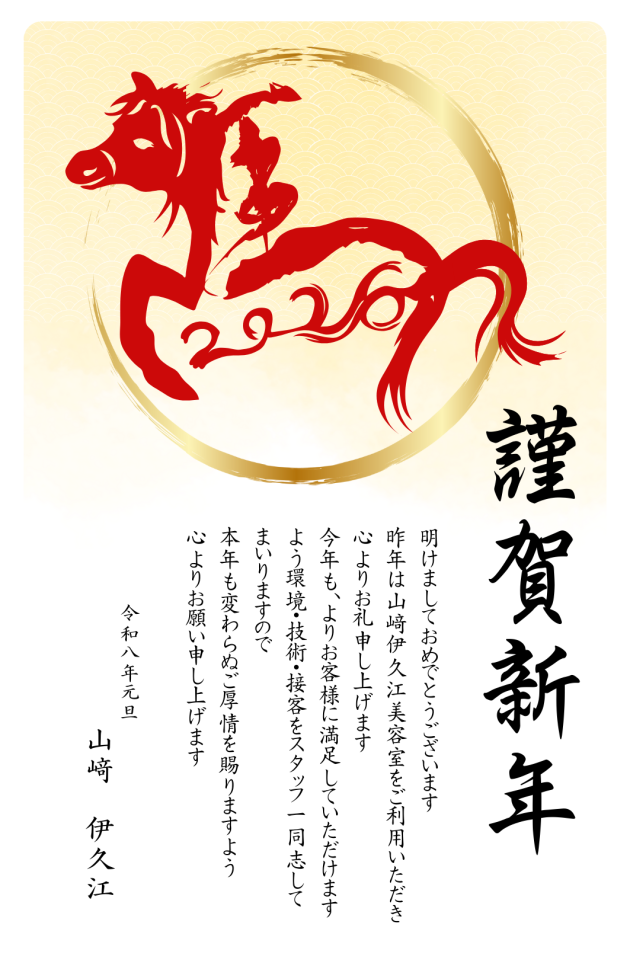 馬
2026
謹賀新年
明けましておめでとうございます
昨年は山﨑伊久江美容室をご利用いただき
心よりお礼申し上げます
今年も、よりお客様に満足していただけます
よう環境・技術・接客をスタッフ一同志して
まいりますので
本年も変わらぬご厚情を賜りますよう
心よりお願い申し上げます
令和八年元旦
山﨑　伊久江